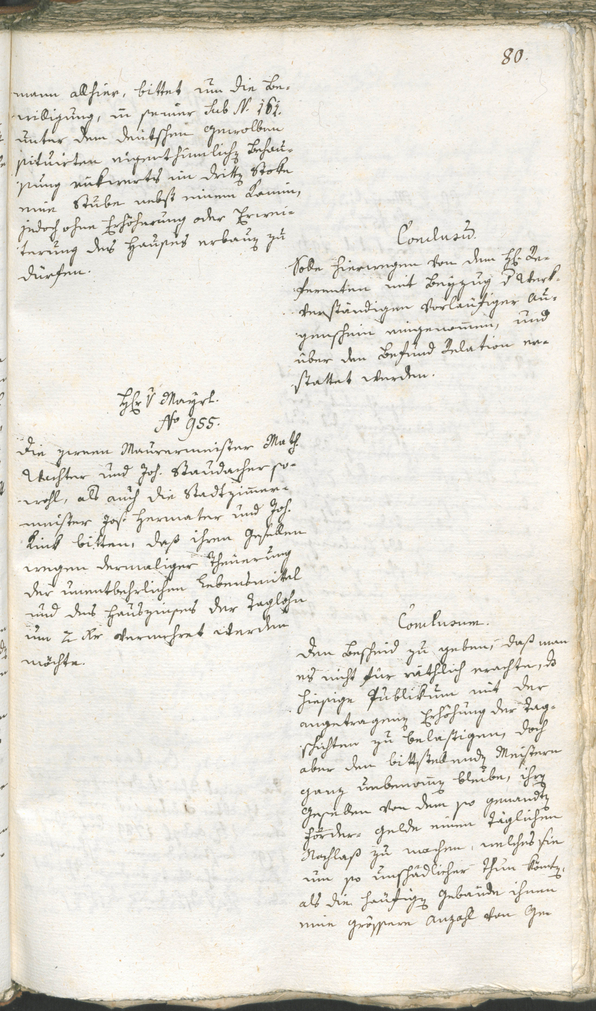 80.
mann allhier, bittet um die Be-
willigung, in seiner sub N. 161.
unter den deutschen Gewölben
situirten eigenthümlichen Behau-
sung rükwerts im dritten Stoke
eine Stube nebst einem Kamin,
jedoch ohne Erhöherung oder Erwei-
terung des Hauses erbauen zu
dürfen.
Conclusum.
Solle hierwegen von dem H. Re-
ferenten mit Beyzug d Werk-
verständigen vorläufiger Au-
genschein eingenommen, und
über den Befund Relation er-
stattet werden.
H. v Mayrl.
No 955.
Die zween Maurermeister Math.
Wachter und Joh. Staudacher so-
wohl, als auch die Stadtzimmer-
meister Jos. Hermater und Joh.
Kink bitten, daß ihren Gesellen
wegen dermaliger Theurung
der unentbehrlichen Lebensmittel
und des Hauszinses der Taglohn
um 2 Kr vermehret werden
möchte.
Conclusum.
Den Bescheid zu geben, daß man
es nicht für räthlich erachte, ds
hiesige Publikum mit der
angetragenen Erhöhung der Tag-
schichten zu belästigen, doch
aber den bittstellenden Meistern
ganz unbenommen bleibe, ihren
Gesellen von dem so genannten
Förder-gelde einen täglichen
Nachlaß zu machen, welches sie
um so unschädlicher thun können,
als die häufigen Gebäude ihnen
eine grössere Anzahl von Ge